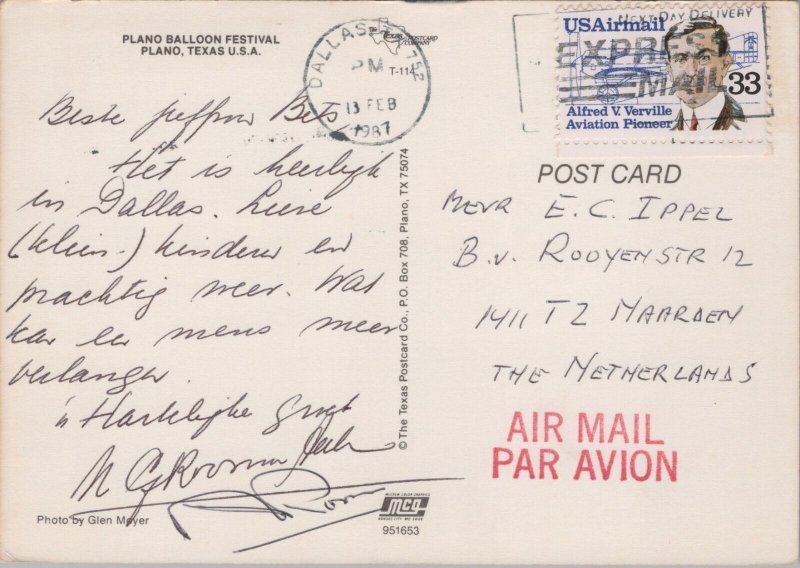 PLANO BALLOON FESTIVAL
PLANO, TEXAS U.S.A.
TEXAS POSTCARD
COMPANY
T-114
DALLAS 752
PM
13 FEB
1987
NEXT DAY DELIVERY
EXPRESS
MAIL
USAirmail
33
Alfred V. Verville
Aviation Pioneer
Beste juffrow Bets
Het is heerlijk
in Dallas. Lieve
(klein-) kinderen en
prachtig weer. Wat
kan een mens meer
verlangen.
Hartelijke groet
© The Texas Postcard Co., P.O. Box 708, Plano, TX 75074
POST CARD
MEVR E.C. IPPEL
B.V. ROOYENSTR 12
1411 TZ NAARDEN
THE NETHERLANDS
AIR MAIL
PAR AVION
Photo by Glen Meyer
mcg
951653